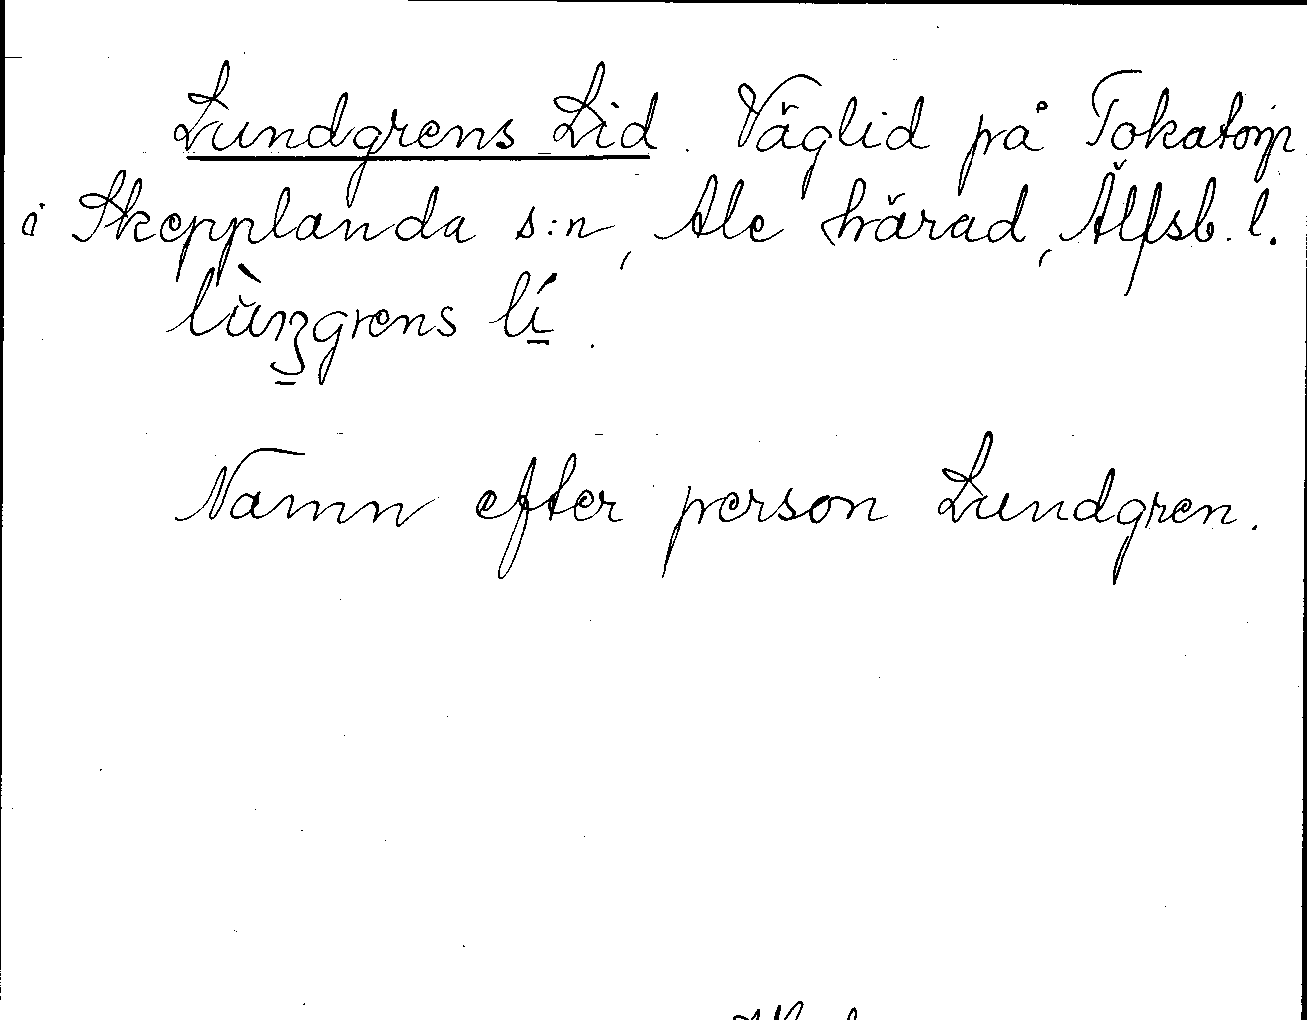 Lundgrens Lid. Väglid på Tokatorp
i Skepplanda s:n, Ale härad, Älfsb. l.
lùnʒgrens lí.
Namn efter person Lundgren.